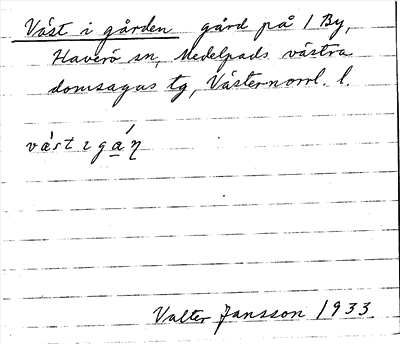 Väst i gården gård på 1 By,
Haverö sn, Medelpads västra
domsagas tg, Västernorrl. l.
Valter Jansson 1933